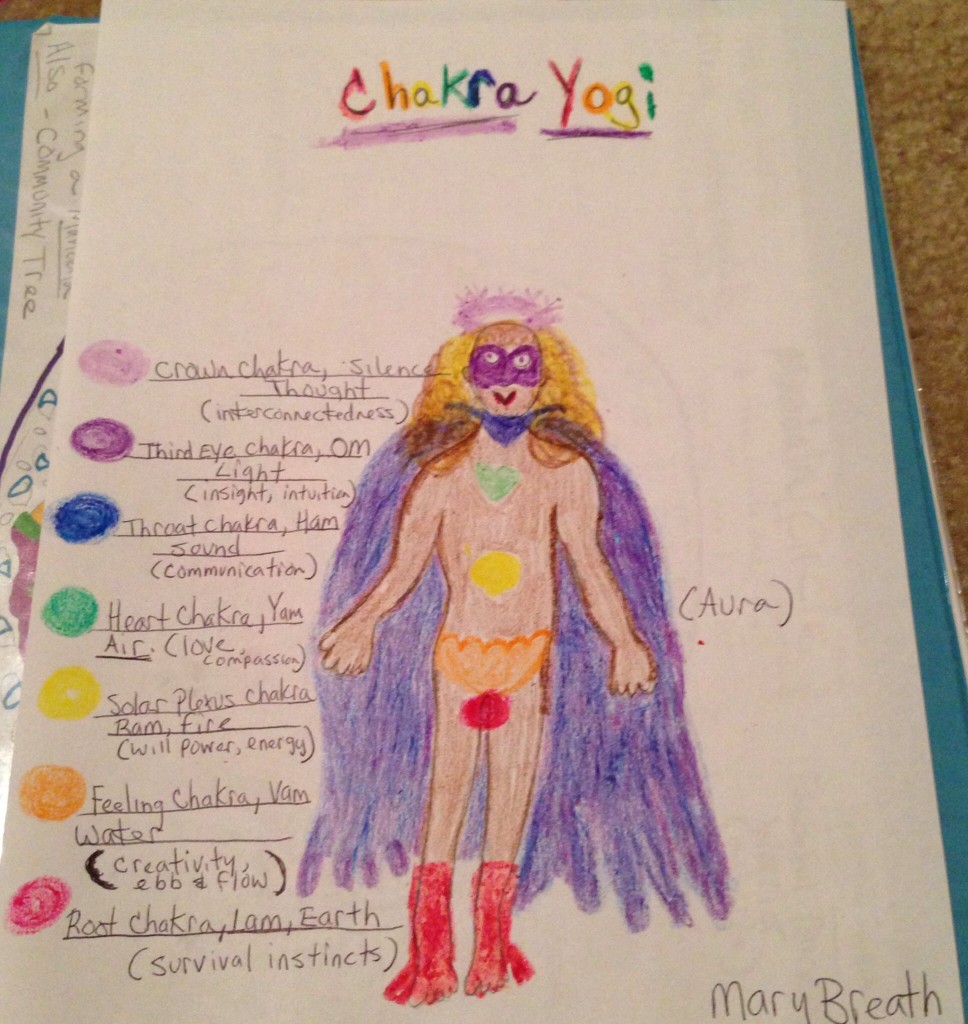 Chakra Yogi
Also - Community Tree
Forming a
Crown Chakra, Silence
Thought
(interconnectedness)
Third Eye Chakra, OM
Light
(insight, intuition)
Throat Chakra, Ham
Sound
(communication)
Heart Chakra, Yam
Air. (love,
compassion)
Solar Plexus Chakra
Ram, fire
(will power, energy)
Feeling Chakra, Vam
Water
(creativity,
ebb & flow)
Root Chakra, Lam, Earth
(survival instincts)
(Aura)
Mary Breath